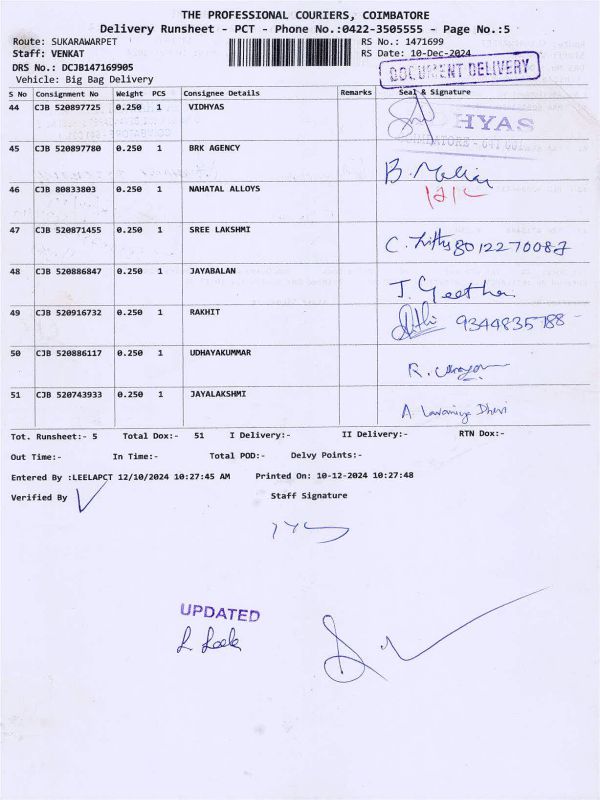 THE PROFESSIONAL COURIERS, COIMBATORE
Delivery Runsheet - PCT - Phone No.:0422-3505555 - Page No.:5
Route: SUKARAWARPET RS No.: 1471699
Staff: VENKAT RS Date: 10-Dec-2024
DRS No.: DCJB147169905
DOCUMENT DELIVERY
Vehicle: Big Bag Delivery
S No Consignment No Weight PCS Consignee Details Remarks Seal & Signature
44 CJB 520897725 0.250 1 VIDHYAS
HYAS
45 CJB 520897780 0.250 1 BRK AGENCY
46 CJB 80833803 0.250 1 NAHATAL ALLOYS
47 CJB 520871455 0.250 1 SREE LAKSHMI C. 8012270087
48 CJB 520886847 0.250 1 JAYABALAN J. Geetha
49 CJB 520916732 0.250 1 RAKHIT 9344835788
50 CJB 520886117 0.250 1 UDHAYAKUMMAR R.
51 CJB 520743933 0.250 1 JAYALAKSHMI A Lavanya Dhevi
Tot. Runsheet:- 5 Total Dox:- 51 I Delivery:- II Delivery:- RTN Dox:-
Out Time:- In Time:- Total POD:- Delvy Points:-
Entered By :LEELAPCT 12/10/2024 10:27:45 AM Printed On: 10-12-2024 10:27:48
Verified By Staff Signature
UPDATED